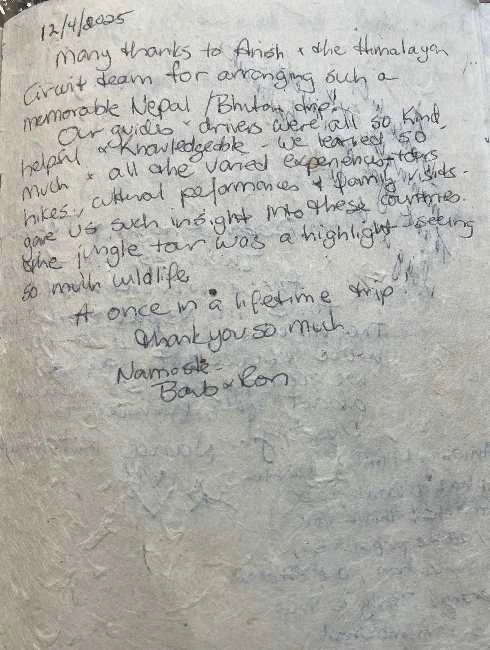 12/4/2025
Many thanks to Anish & the Himalayan
Circuit team for arranging such a
memorable Nepal / Bhutan trip!
Our guides & drivers were all so kind,
helpful & knowledgeable - we learned so
much & all the varied experiences, tours
hikes, cultural peformances & family visits -
gave us such insight into these countries.
the jungle tour was a highlight - seeing
so much wildlife
A once in a lifetime trip
thank you so much
Namaste -
Barb & Ron